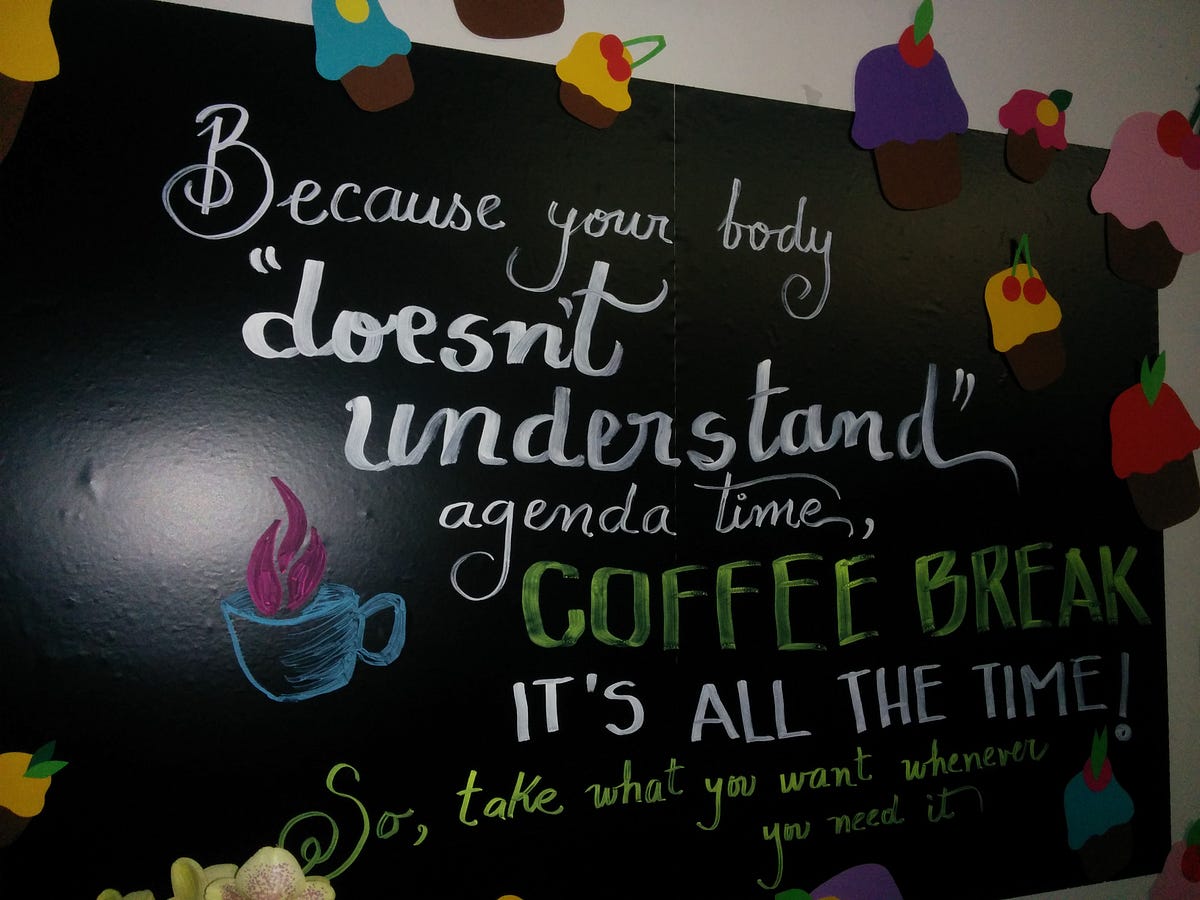 Because your body
"doesn't
understand"
agenda time,
COFFEE BREAK
IT'S ALL THE TIME!
So, take what you want whenever
you need it